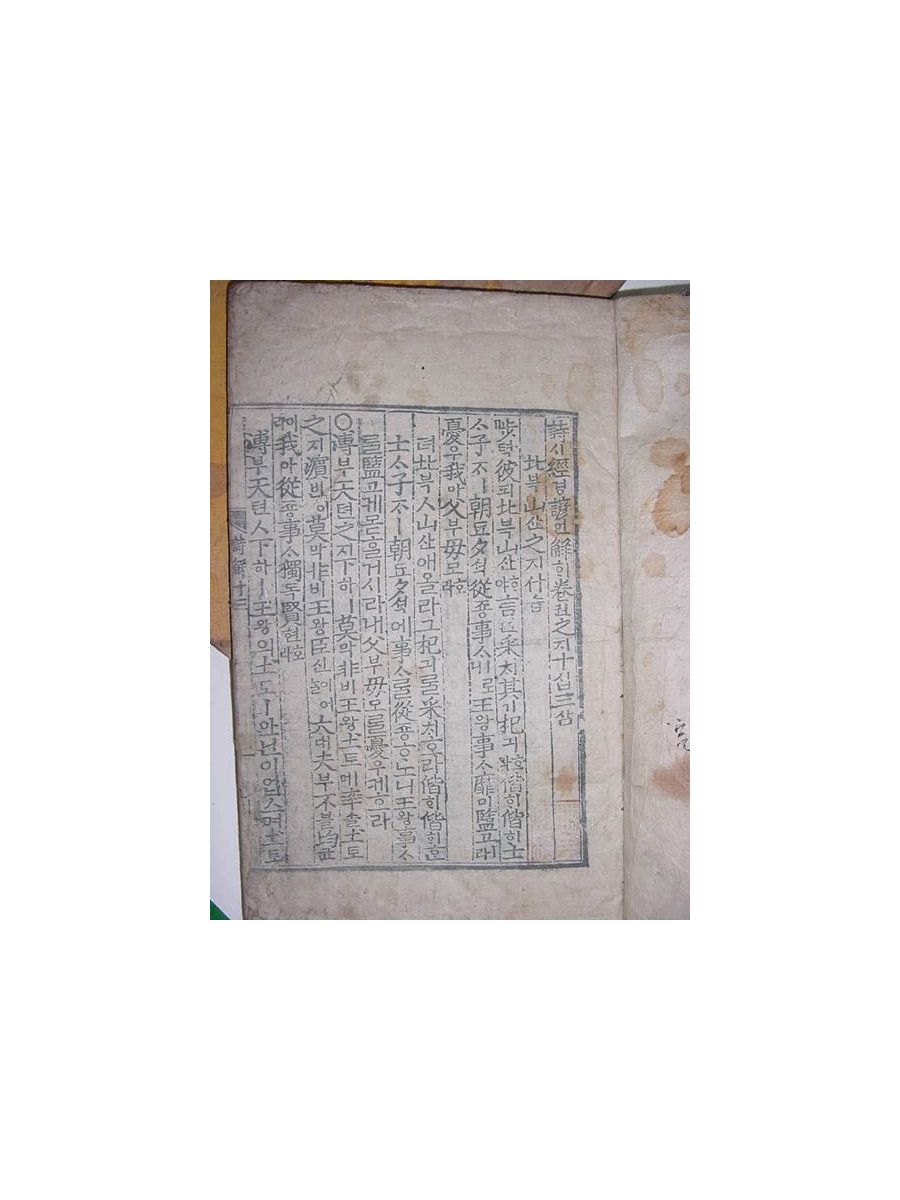 詩시經경諺언解해卷권之지十십三삼
北북山산之지什습
陟텩彼피北북山산ᄒᆞ야言언采ᄎᆡ其기杞긔호라偕ᄒᆡ偕ᄒᆡ士
ᄉᆞ子ᄌᆞㅣ朝됴夕셕從죵事ᄉᆞㅣ로니王왕事ᄉᆞ靡미盬고ㅣ라
憂우我아父부母모호라
뎌北븍山산애올라그杞긔ᄅᆞᆯ采ᄎᆡ호라偕ᄒᆡ偕ᄒᆡᄒᆞᆫ
士ᄉᆞ子ᄌᆞㅣ朝됴夕셕에事ᄉᆞᄅᆞᆯ從죵ᄒᆞ노니王왕事ᄉᆞ
ᄅᆞᆯ盬고케몯ᄒᆞᆯ거시라내父부母모ᄅᆞᆯ憂우케호라
○溥부天텬之지下하ㅣ莫막非비王왕土토ㅣ며率솔土토
之지濱빈이莫막非비王왕臣신이어ᄂᆞᆯ大대夫부不블均균
이라我아從죵事ᄉᆞ獨독賢현호라
溥부天텬ㅅ下하ㅣ王왕의土토ㅣ아닌이업스며土토
詩解十三